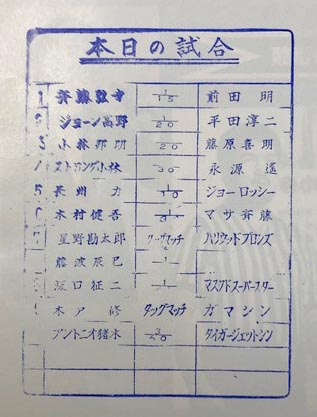 本日の試合
1 斉藤弘幸 1/15 前田明
2 ジョージ高野 1/20 平田淳二
3 小林邦明 1/20 藤原喜明
4 ストロング小林 1/30 永源遙
5 長州力 1/ ジョーロッシー
6 木村健吾 マサ斉藤
7 星野勘太郎 タッグマッチ ハリウッドブロンズ
藤波辰巳
坂口征二 マスクドスーパースター
木戸修 タッグマッチ ガマシン
アントニオ猪木 タイガージェットシン